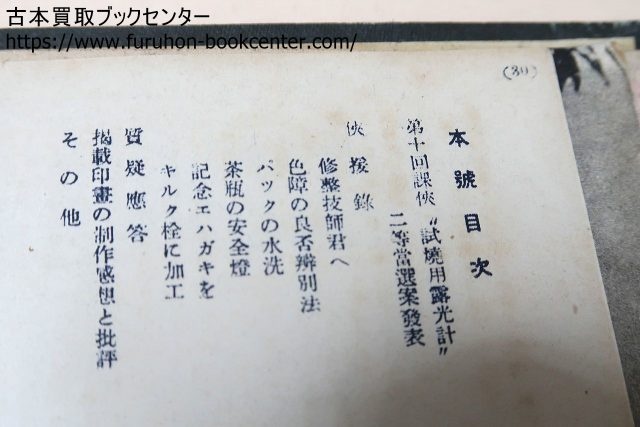 古本買取ブックセンター
https://www.furuhon-bookcenter.com/
(30)
本號目次
第十回課俠〝試燒用露光計〟
二等當選案發表
俠援錄
修整技師君へ
色障の良否辨別法
パックの水洗
茶瓶の安全燈
記念エハガキを
キルク栓に加工
質疑應答
揭載印畫の制作感想と批評
その他